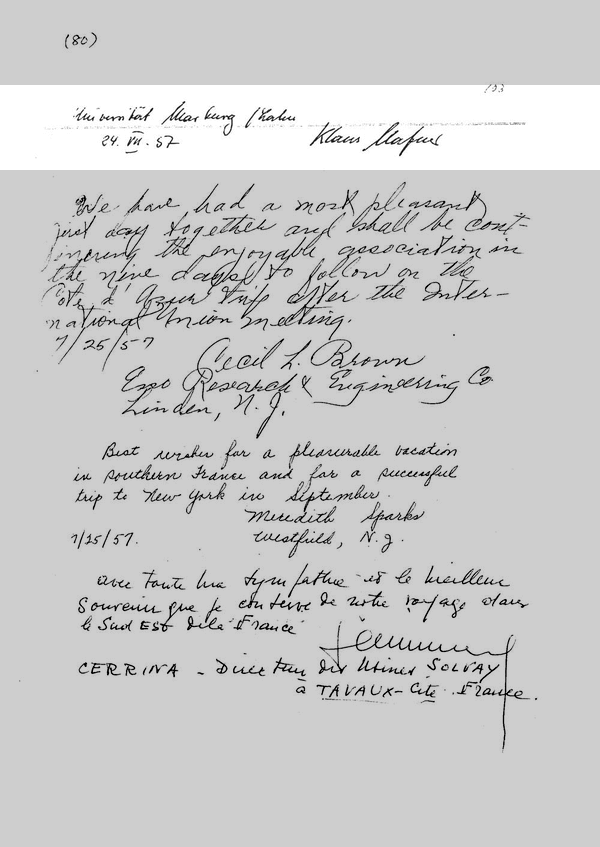 (80)
103
Universität Marburg / Lahn
24. VII. 57 Klaus
We have had a most pleasant
first day together and shall be cont-
inuing the enjoyable association in
the nine days to follow on the
Cote d'Azur trip after the Inter-
national Union meeting.
7/25/57
Cecil L. Brown
Esso Research & Engineering Co
Linden, N. J.
Best wishes for a pleasurable vacation
in southern France and for a successful
trip to New York in September.
Meredith Sparks
7/25/57. Westfield, N. J.
avec toute ma sympathie et le meilleur
souvenir que je conserve de notre voyage dans
le Sud EST de la France
CERRINA - Directeur des Usines SOLVAY
à TAVAUX-Cité. France.